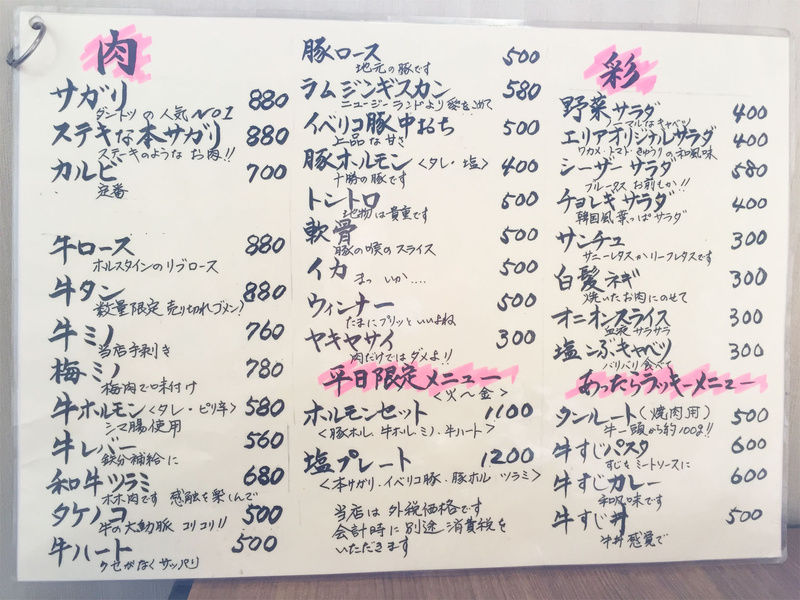 肉
サガリ 880
ダントツの人気No1
ステキな本サガリ 880
ステーキのような お肉!!
カルビ 700
定番
牛ロース 880
ホルスタインのリブロース
牛タン 880
数量限定 売り切れゴメン)
牛ミノ 760
当店手剥き
梅ミノ 780
梅肉で味付け
牛ホルモン<タレ・ピリ辛> 580
シマ腸使用
牛レバー 560
鉄分補給に
和牛ツラミ 680
ホホ肉です 感触を楽しんで
タケノコ 500
牛の大動脈 コリコリ!!
牛ハート 500
クセがなくサッパリ
豚ロース 500
地元の豚です
ラムジンギスカン 580
ニュージーランドより愛をこめて
イベリコ豚中おち 500
上品な甘さ
豚ホルモン<タレ・塩> 400
十勝の豚です
トントロ 500
地物は貴重です
軟骨 500
豚の喉のスライス
イカ 500
まっ いか....
ウィンナー 500
たまにプリッといいよね
ヤキヤサイ 300
肉だけではダメよ!!
平日限定メニュー
<火〜金>
ホルモンセット 1100
<豚ホル、牛ホル、ミノ、牛ハート>
塩プレート 1200
<本サガリ・イベリコ豚・豚ホル ツラミ>
当店は 外税価格です
会計時に別途 消費税を
いただきます
彩
野菜サラダ 400
ノーマルなキャベツ
エリアオリジナルサラダ 400
ワカメ・トマト・きゅうりの和風味
シーザーサラダ 580
ブルータス お前もか!!
チョレギサラダ 400
韓国風葉っぱサラダ
サンチュ 300
サニーレタスかリーフレタスです
白髪ネギ 300
焼いたお肉にのせて
オニオンスライス 300
血液サラサラ
塩こぶキャベツ 300
バリバリ食べて
あったらラッキーメニュー
タンルート(焼肉用) 500
牛一頭から約100g!!
牛すじパスタ 600
すじをミートソースに
牛すじカレー 600
和風味です
牛すじ丼 500
牛丼感覚で